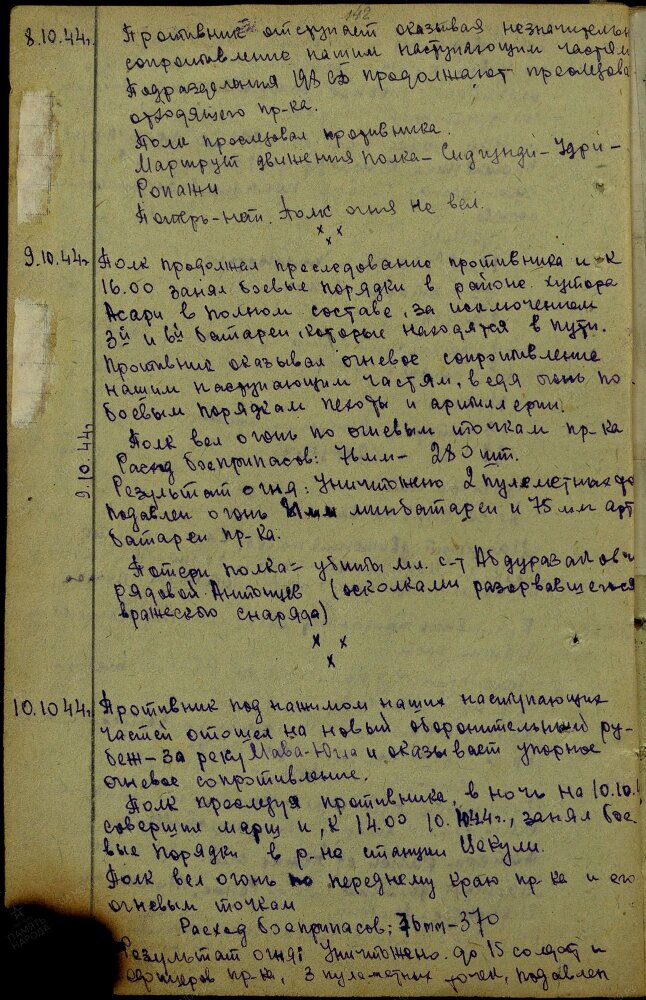 142
8.10.44г. Противник отступает оказывая незначительн
сопротивление нашим наступающим частям
Подразделения 198 СД продолжают преследова
отходящего пр-ка.
Полк преследовал противника.
Маршрут движения полка – Сидгунди – Удри –
Ропажи
Потерь – нет. Полк огня не вел.
х х
х
9.10.44г Полк продолжал преследование противника и к
16.00 занял боевые порядки в районе хутора
Асари в полном составе, за исключением
3й и 6й батареи, которые находятся в пути.
Противник оказывал огневое сопротивление
нашим наступающим частям, ведя огонь по
боевым порядкам пехоты и артиллерии.
9.10.44г.
Полк вел огонь по огневым точкам пр-ка
Расход боеприпасов: 76мм – 280 шт.
Результат огня: Уничтожено 2 пулеметных
подавлен огонь минбатареи и 75 мм арт
батареи пр-ка.
Потери полка = убиты мл. с-т Абдуразаков и
рядовой (осколками разорвавшегося
вражеского снаряда)
х х
х
10.10.44г. Противник под нажимом наших наступающих
частей отошел на новый оборонительный ру-
беж – за реку Мава-Югла и оказывает упорное
огневое сопротивление.
Полк преследуя противника, в ночь на 10.10.
совершил марш и, к 14.00 10.10.44г., занял бое-
вые порядки в р-не станции Цекули.
Полк вел огонь по переднему краю пр-ка и его
огневым точкам
Расход боеприпасов; 76мм – 370
Результат огня: Уничтожено до 15 солдат и
офицеров пр-ка, 3 пулеметных точек, подавлен
ПАМЯТЬ
НАРОДА